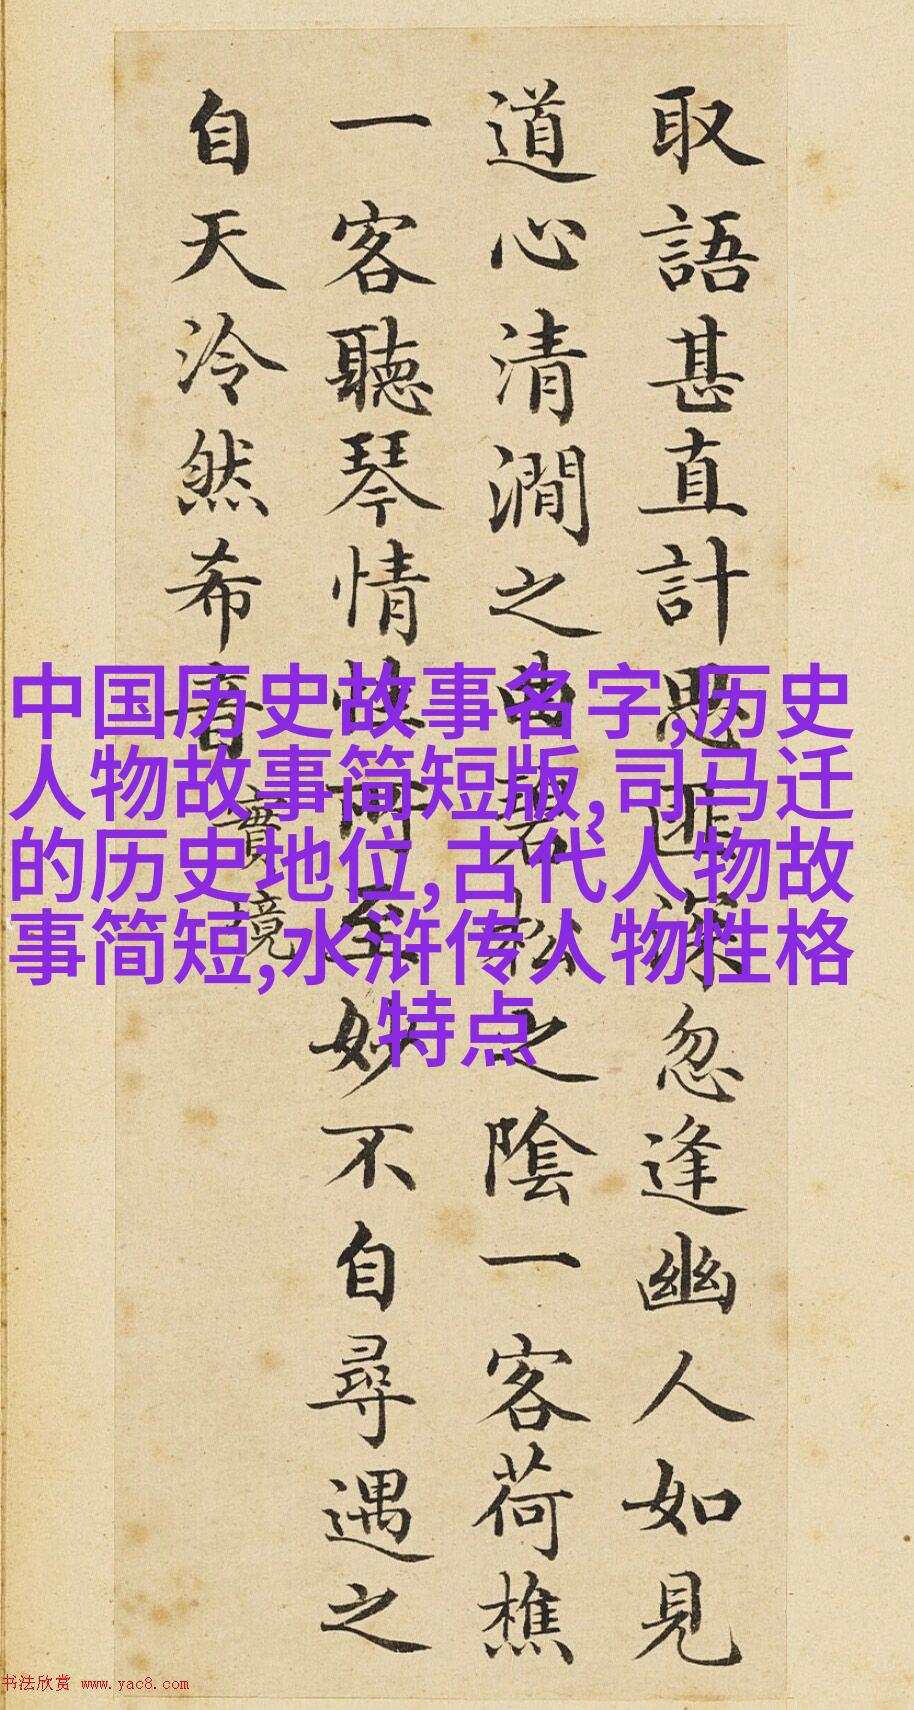 取語甚直計思匪深忽逢幽人如見
道心清澗之曲碧松之陰一客荷樵
一客聽琴情性所至妙不自尋遇之
自天泠然希音
實境
中国历史故事名字,历史
人物故事简短版,司马迁
的历史地位,古代人物故
事简短,水浒传人物性格
特点
书法欣赏 www.yac8.com